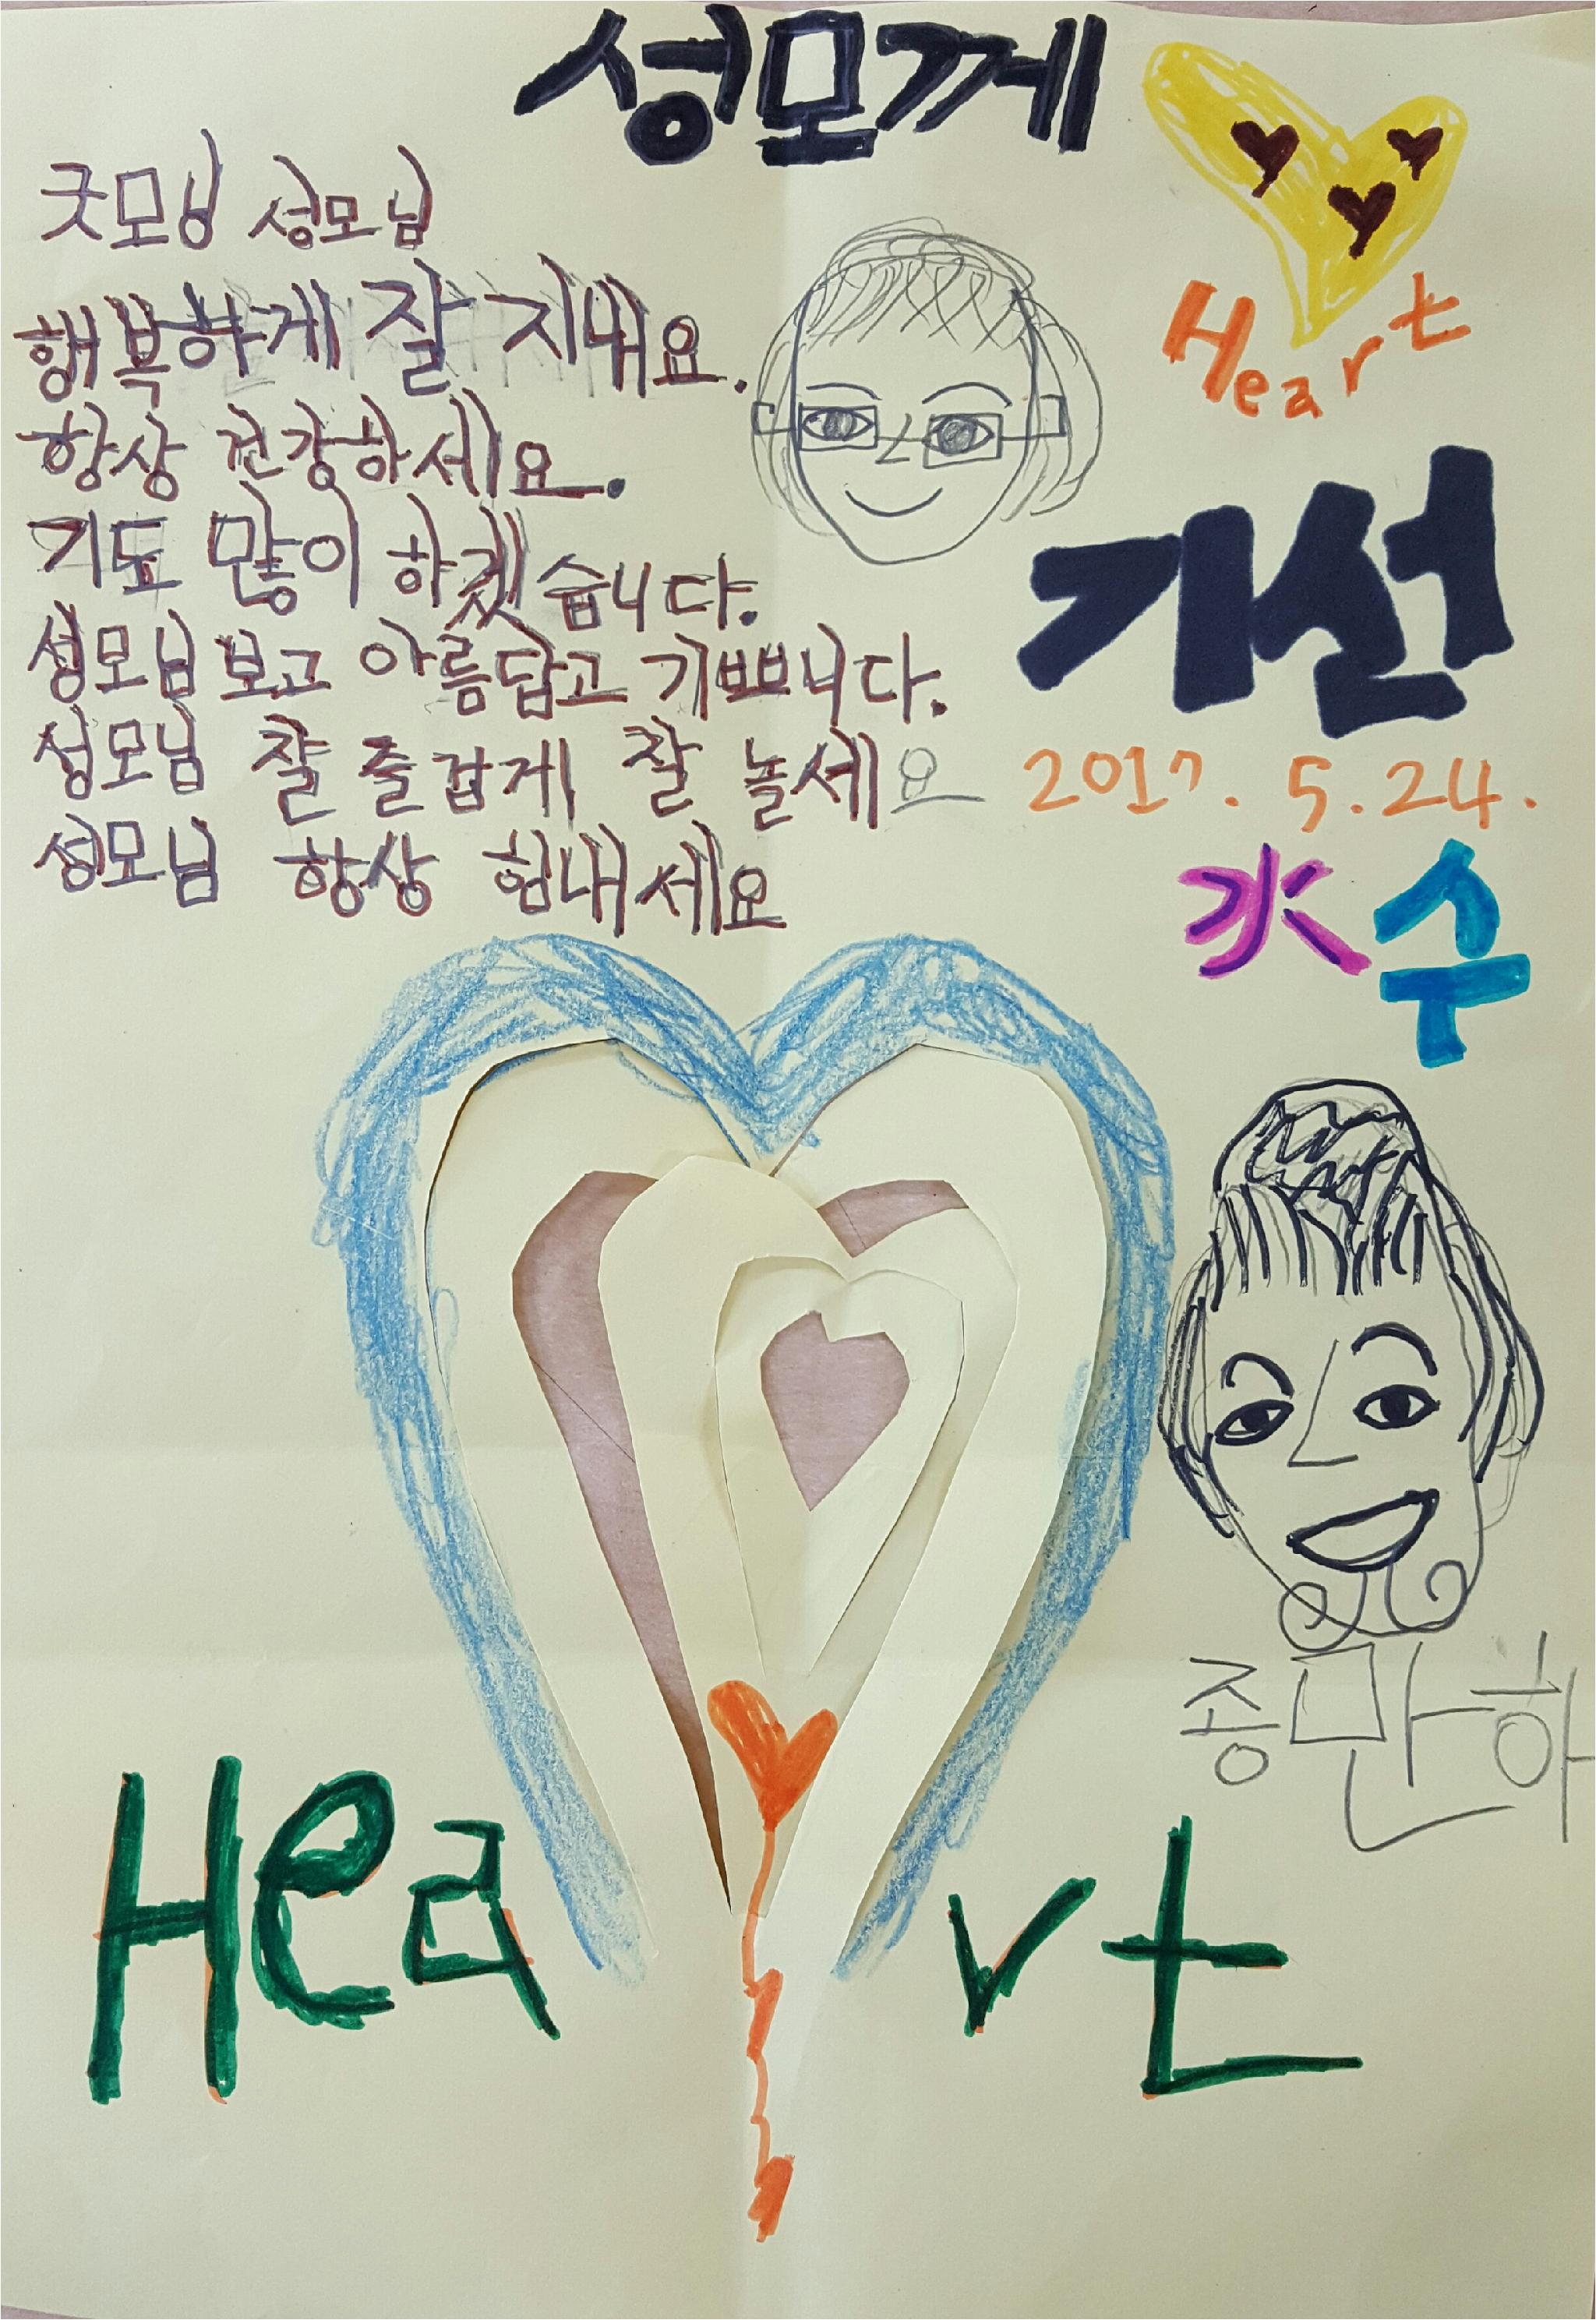 성모께
굿모닝 성모님
행복하게 잘 지내요.
항상 건강하세요.
기도 많이 하겠습니다.
성모님 보고 아름답고 기쁘니다.
성모님 잘 즐겁게 잘 놀세요
성모님 항상 힘내세요
Heart
기선
2017. 5.24.
水 수
종만하
Heart